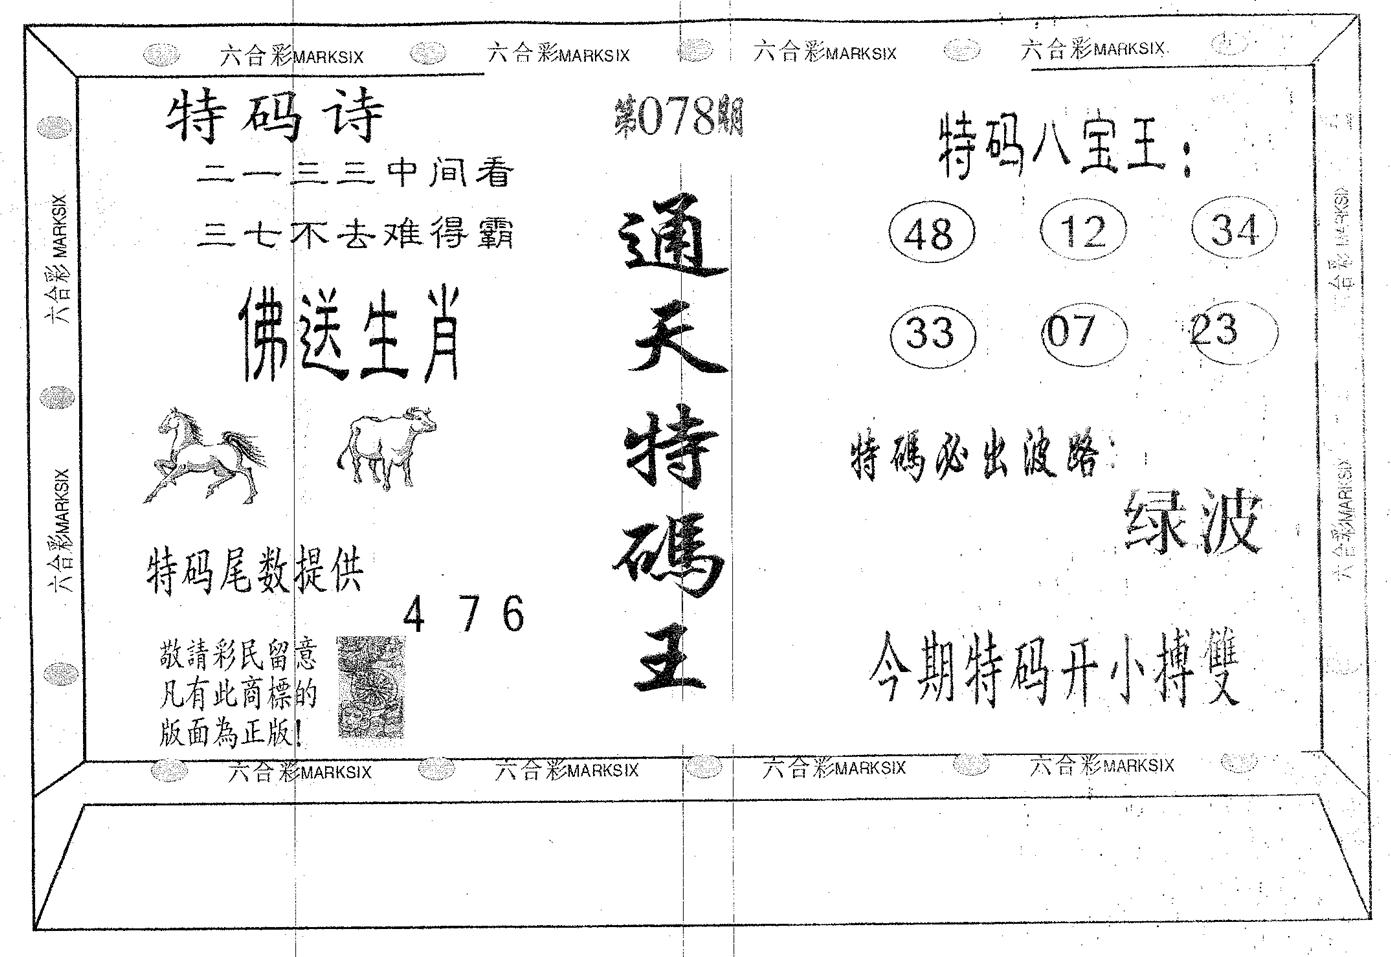 六合彩MARKSIX 六合彩MARKSIX 六合彩MARKSIX 六合彩MARKSIX
特码诗
二一三三中间看
三七不去难得霸
佛送生肖
特码尾数提供
4 7 6
敬請彩民留意
凡有此商標的
版面為正版!
第078期
通天特碼王
特码八宝王:
48 12 34
33 07 23
特碼必出波路:
绿波
今期特码开小搏雙
六合彩MARKSIX
六合彩MARKSIX
六合彩MARKSIX
六合彩MARKSIX
六合彩MARKSIX 六合彩MARKSIX 六合彩MARKSIX 六合彩MARKSIX